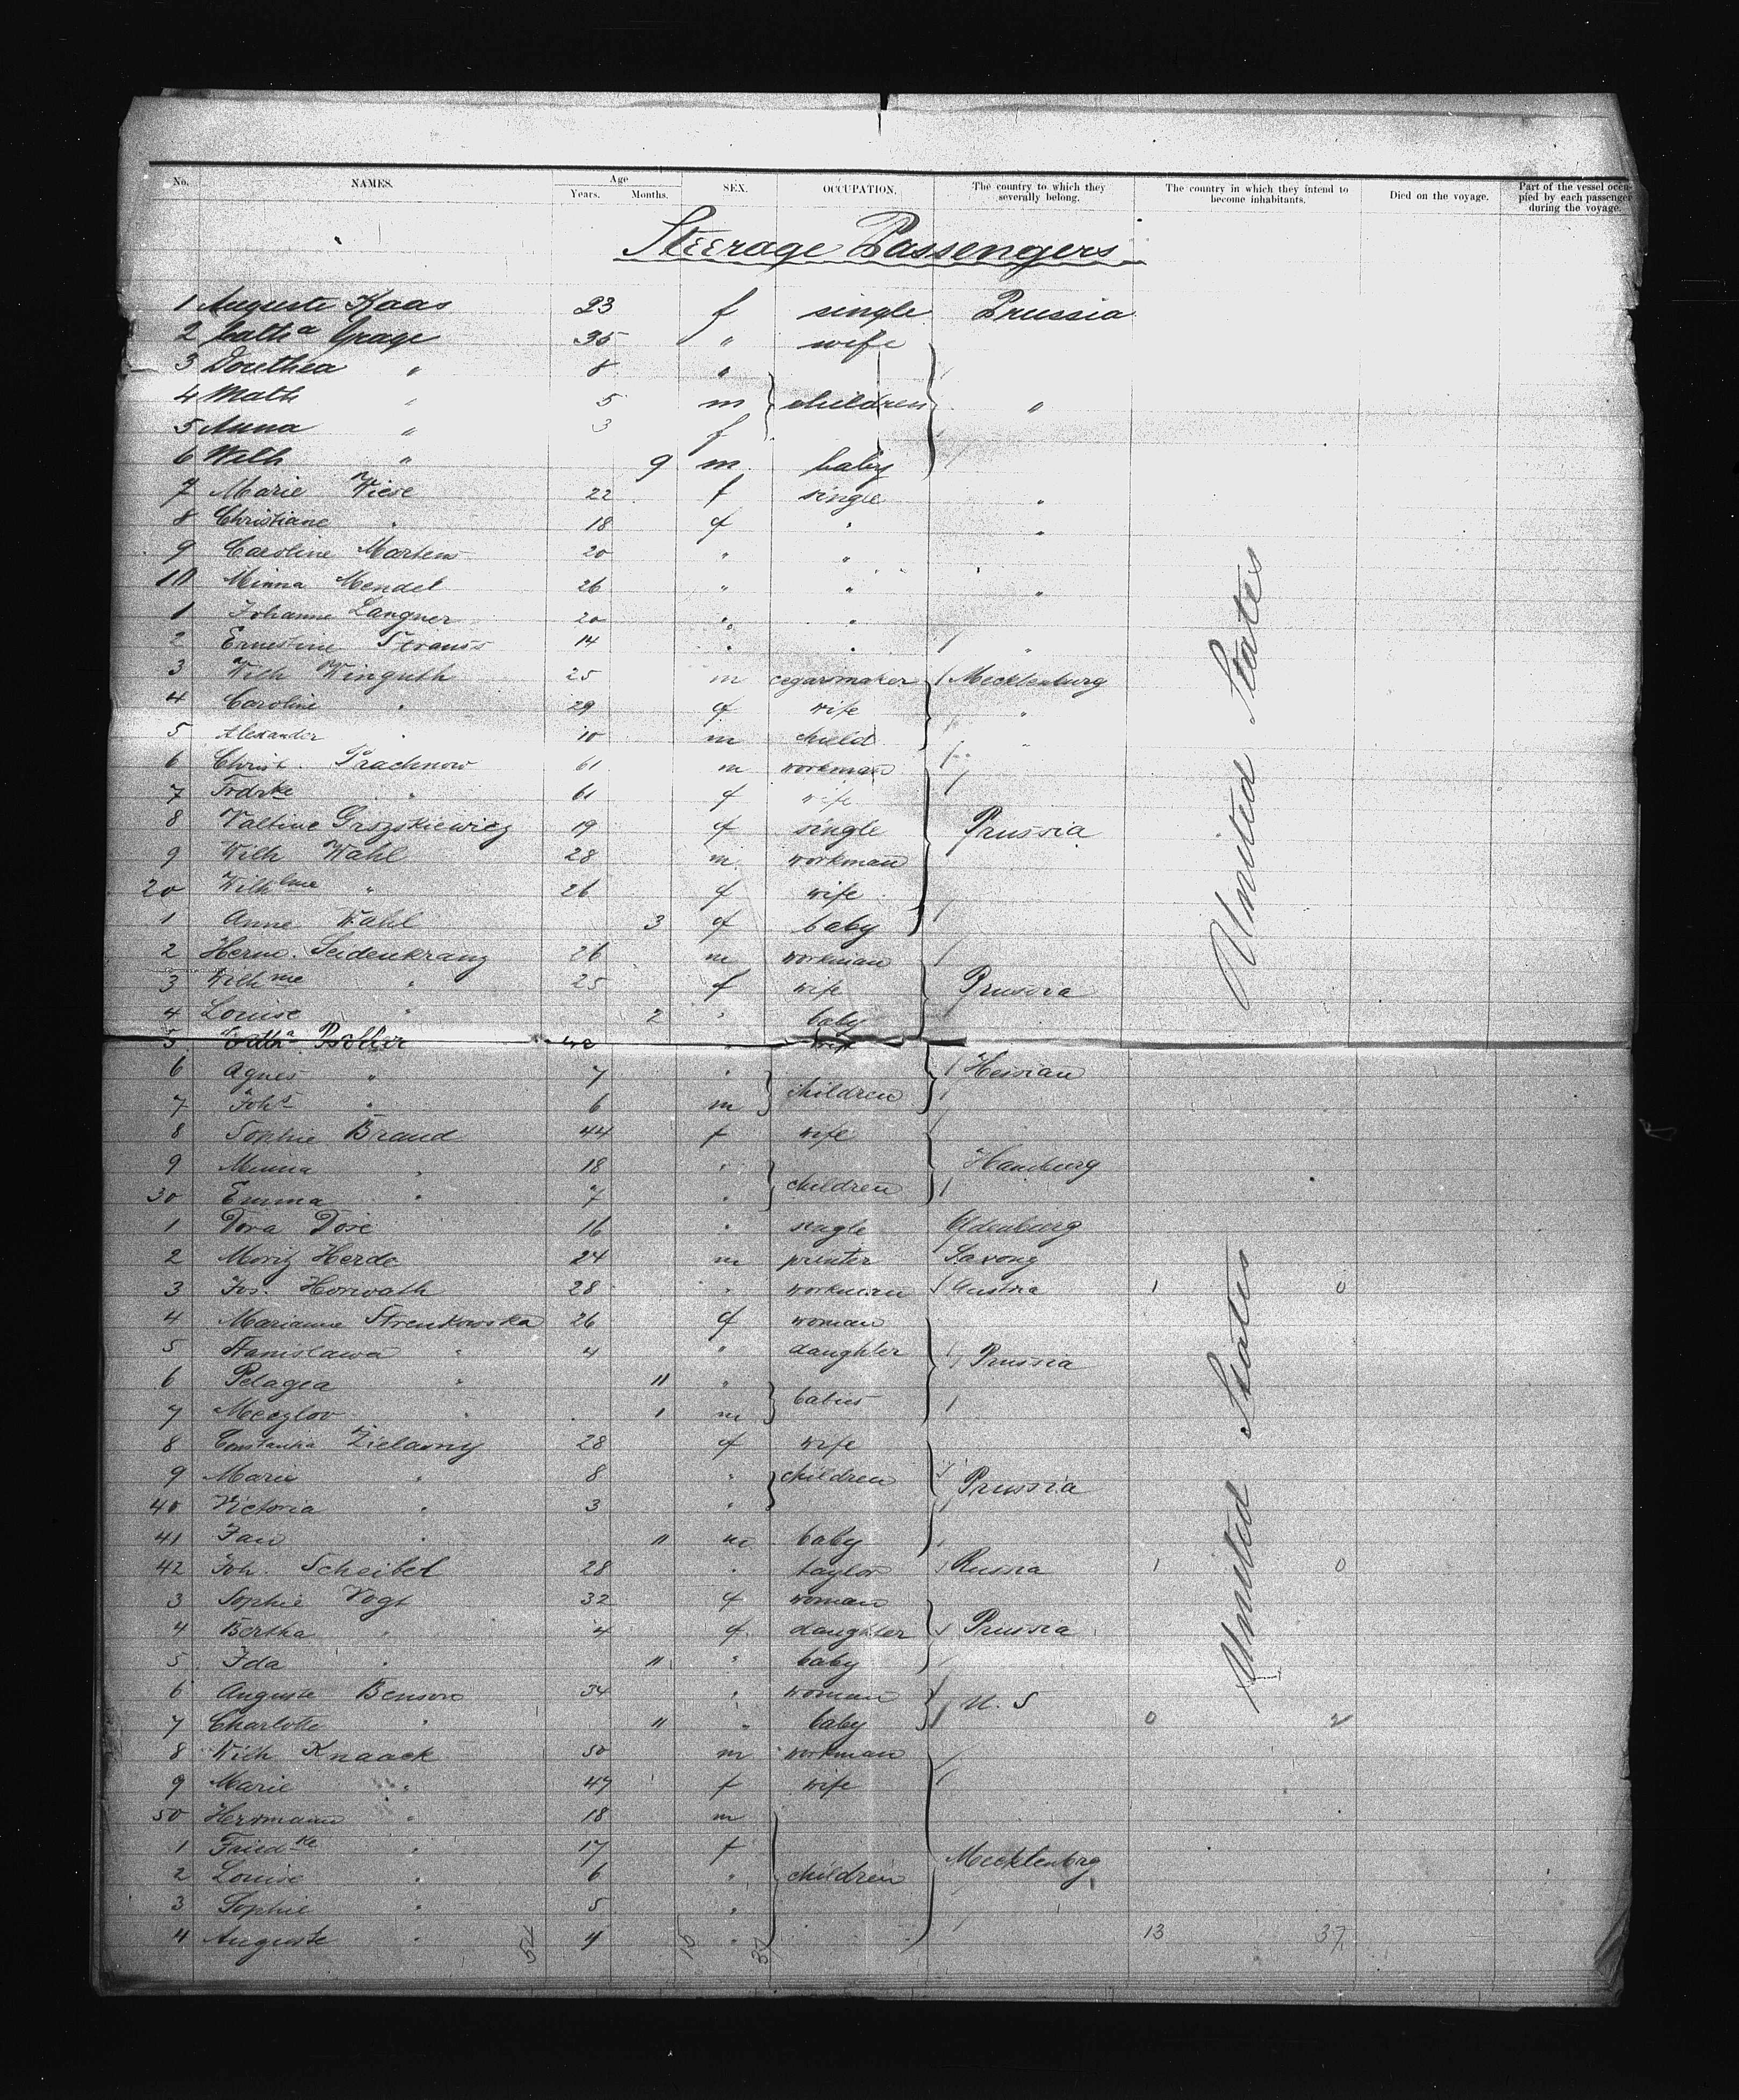 No. NAMES. Age Years. Months. SEX. OCCUPATION. The country to which they severally belong. The country in which they intend to become inhabitants. Died on the voyage. Part of the vessel occupied by each passenger during the voyage.
Steerage Passengers
1 Auguste Kaas 23 f single Prussia
2 Grage 35 " wife
3 Dorethea " 8 "
4 Math " 5 m children "
5 Anna " 3 f
6 Wilh " 9 m baby
7 Marie Wiese 22 f single "
8 Christiane " 18 f " "
9 Caroline Martens 20 " "
10 Minna Mendel 26 " " "
1 Johanne Langner 20 " "
2 Ernestine Strauss 14 " " "
3 Wilh Winguth 25 m cegarmaker Mecklenburg
4 Caroline " 29 f wife "
5 Alexander " 10 m child "
6 Christ. Prachnow 61 m workman
7 Frdrke " 61 f wife
8 Valtine Grszskiewicz 19 f single Prussia
9 Wilh Wahl 28 m workman
20 Wilhlme " 26 f wife
1 Anne Wahl 3 f baby
2 Herm. Seidenkranz 26 m workman
3 Wilhme " 25 f wife Prussia
4 Louise " 2 " baby
5 42 " wife
6 Agnes " 7 " Hessian
7 Johs " 6 m children
8 Sophie Brand 44 f wife
9 Minna " 18 " Hamburg
30 Emma " 7 " children
1 Dora Dose 16 " single Oldenburg
2 Moritz Herde 24 m printer Saxony
3 Jos. Horwath 28 " workman Austria 1 0
4 Marianne Strenkowska 26 f woman
5 Stanislawa " 4 " daughter Prussia
6 Pelagea " 11 "
7 Meczlov " 1 m babies
8 Constantia Zielasny 28 f wife
9 Marie " 8 " children Prussia
40 Victoria " 3 "
41 Jan " 11 m baby
42 Joh. Scheibel 28 " taylor Russia 1 0
3 Sophie Vogt 32 f woman
4 Bertha " 4 f daughter Prussia
5 Ida " 11 " baby
6 Auguste Benson 34 " woman U.S
7 Charlotte " 11 " baby 0 2
8 Wilh Knaack 50 m workman
9 Marie " 47 f wife
50 Herrmann " 18 m
1 Friedke " 17 f Mecklenbrg
2 Louise " 6 " children
3 Sophie " 5 "
4 Auguste " 4 " 13 37
United States
United States